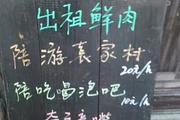 出租鲜肉
陪游袁家村
20元/h
陪吃喝泡吧
10元/h